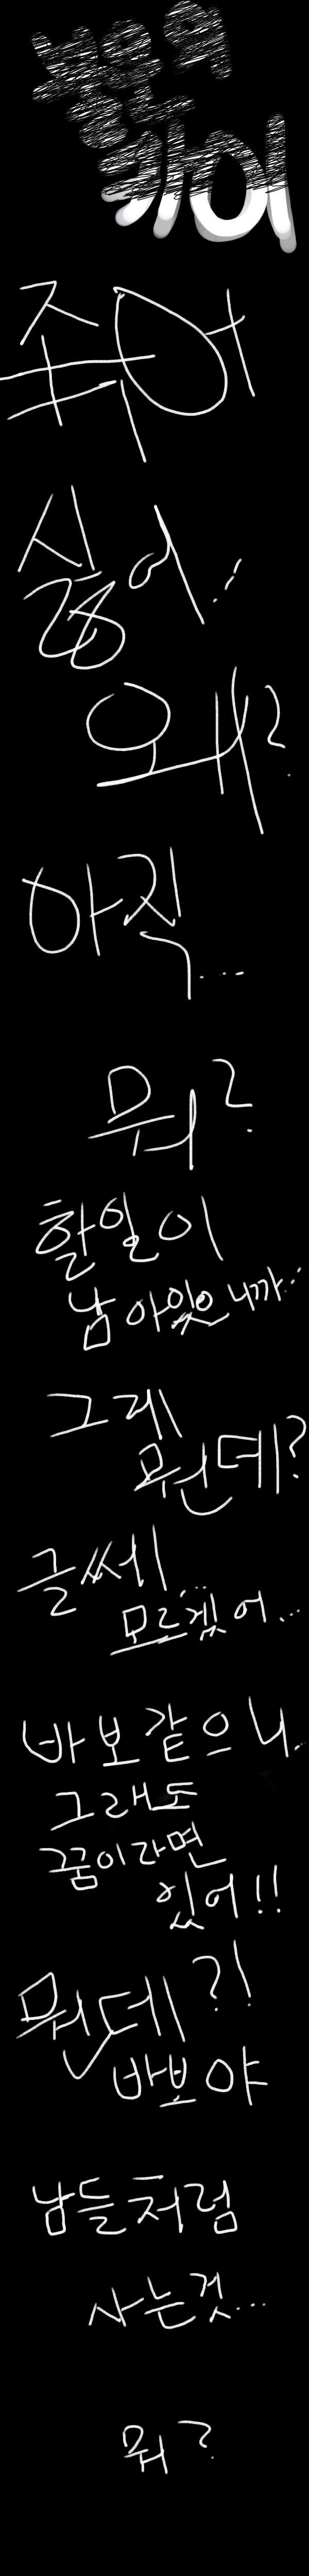 불운의
카이
죽어
싫어!
왜?
아직...
뭐?
할일이
남아있으니까..
그게
뭔데?
글쎄..
모르겠어...
바보같으니..
그래도
그꿈이라면
있어!!
뭔데?!
바보야
남들처럼
사는것...
뭐?